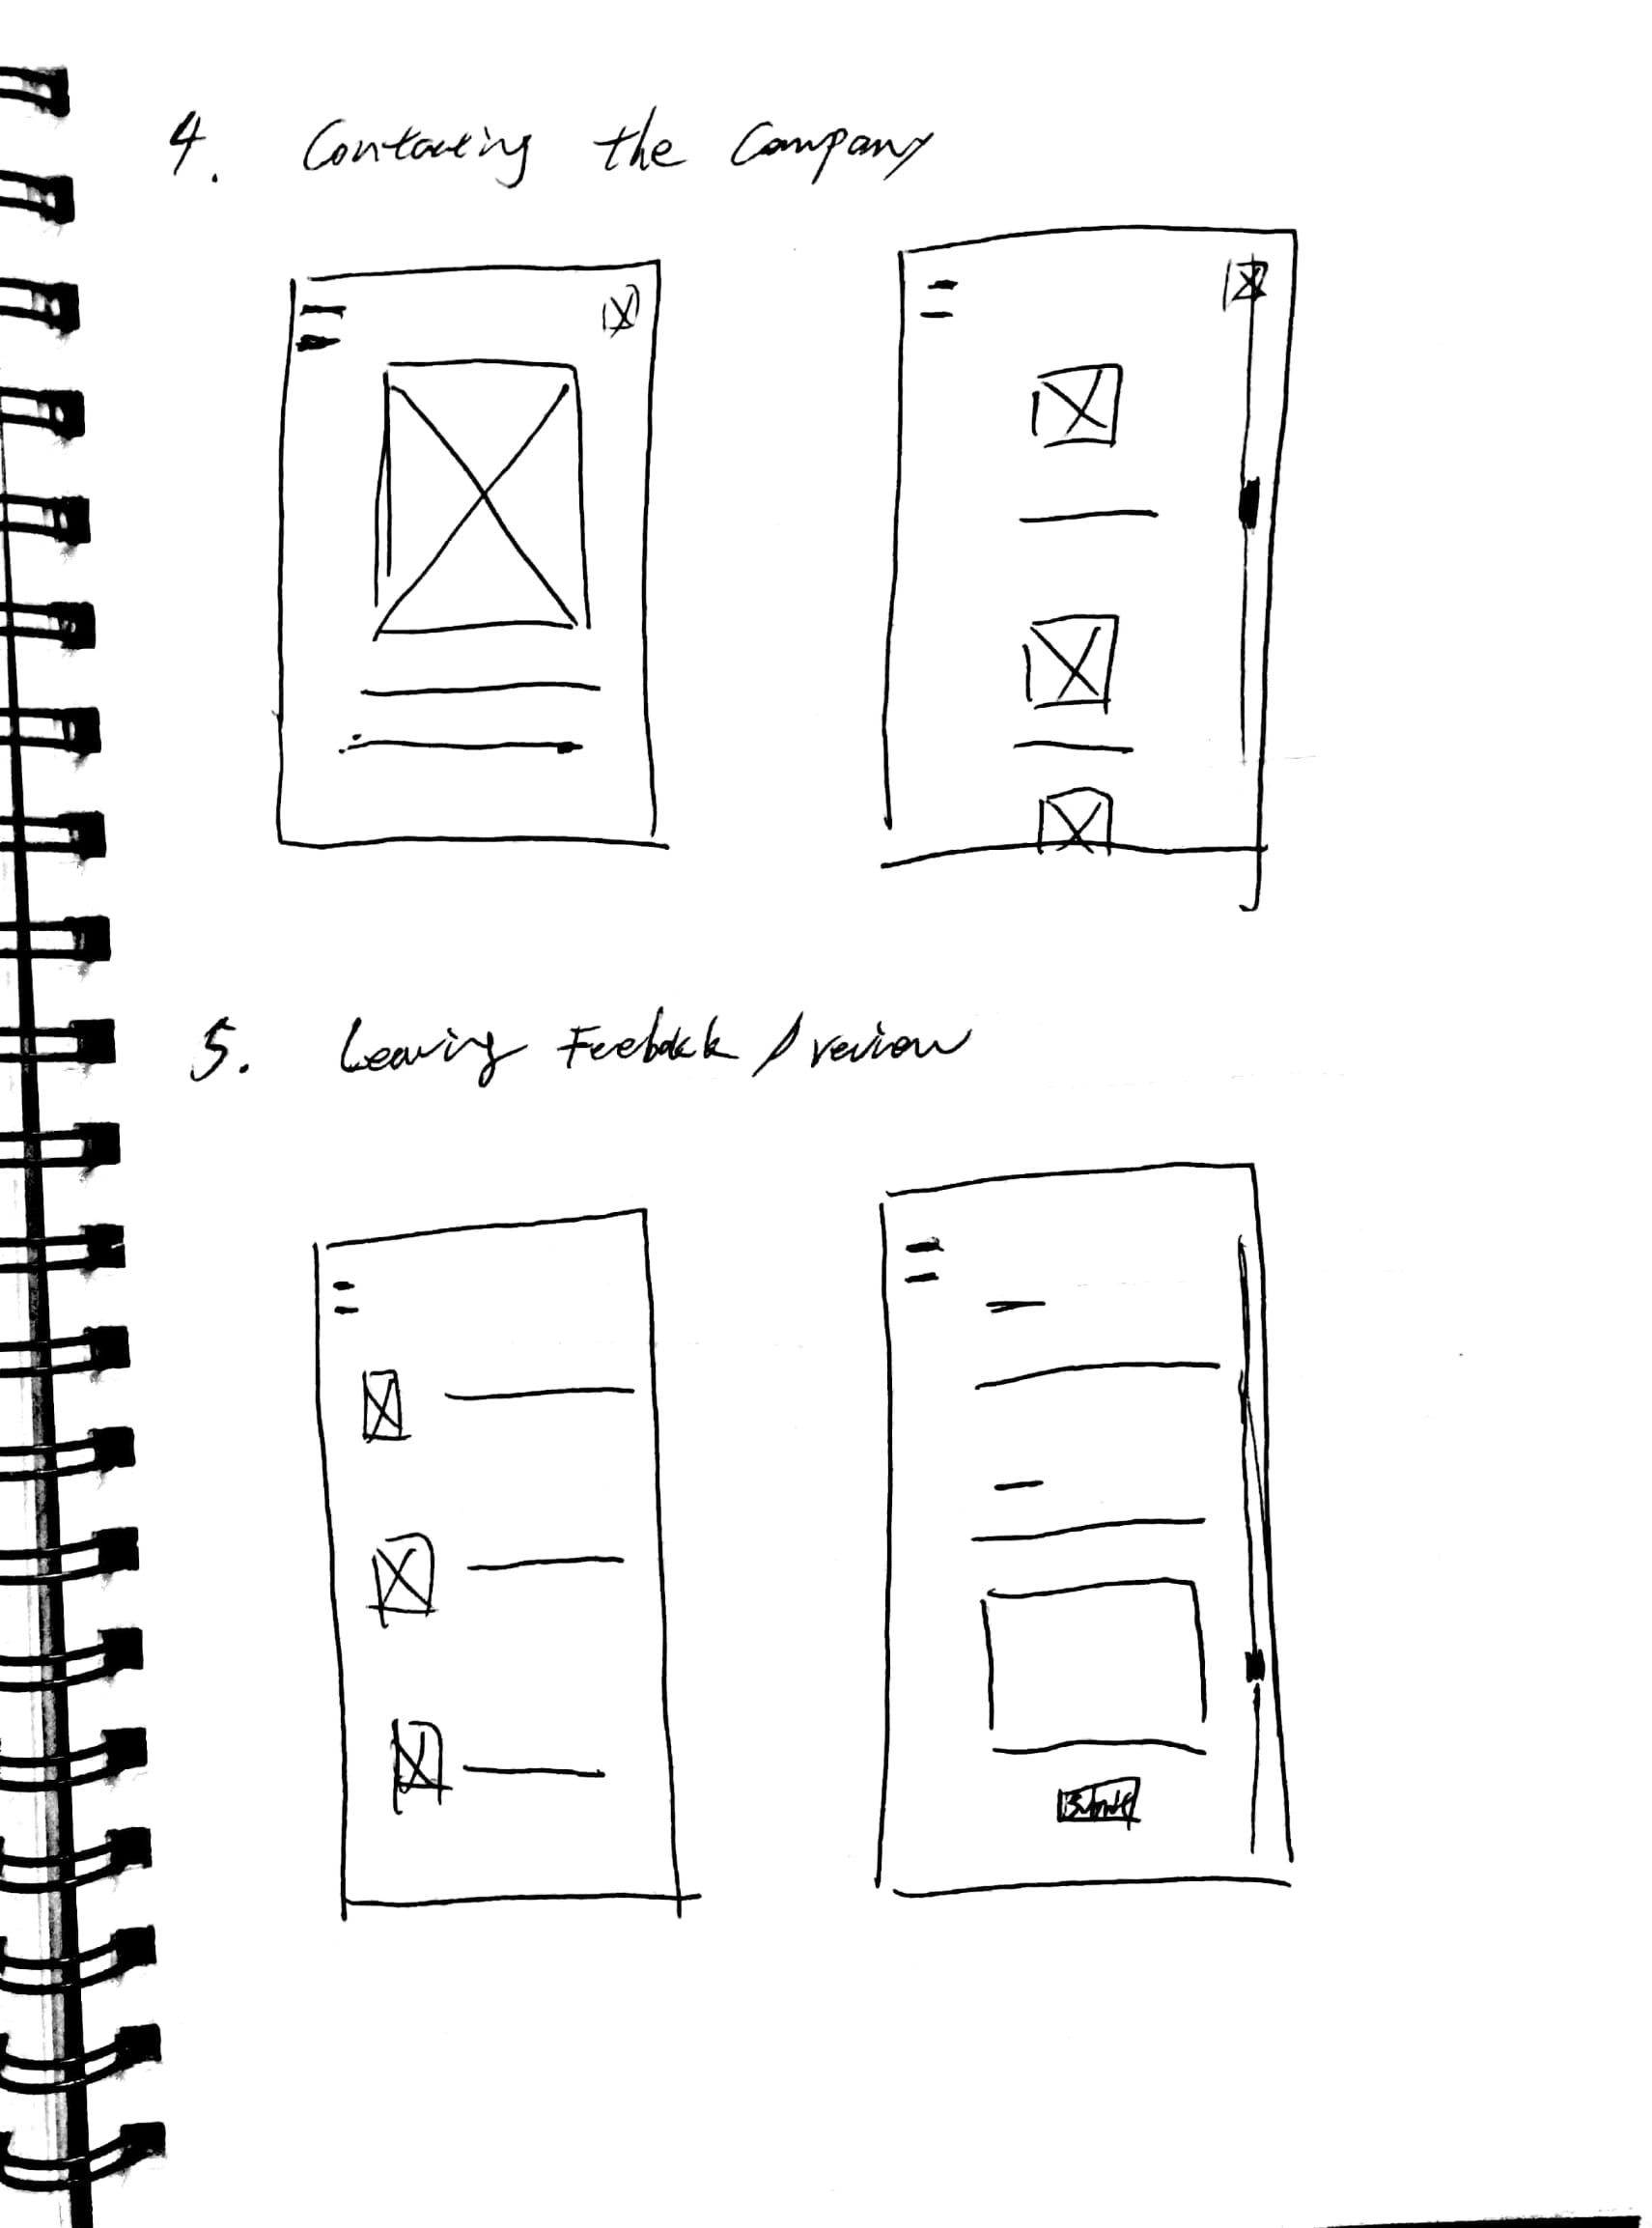 4. Contacting the Company
5. Leaving Feeback / review
Submit